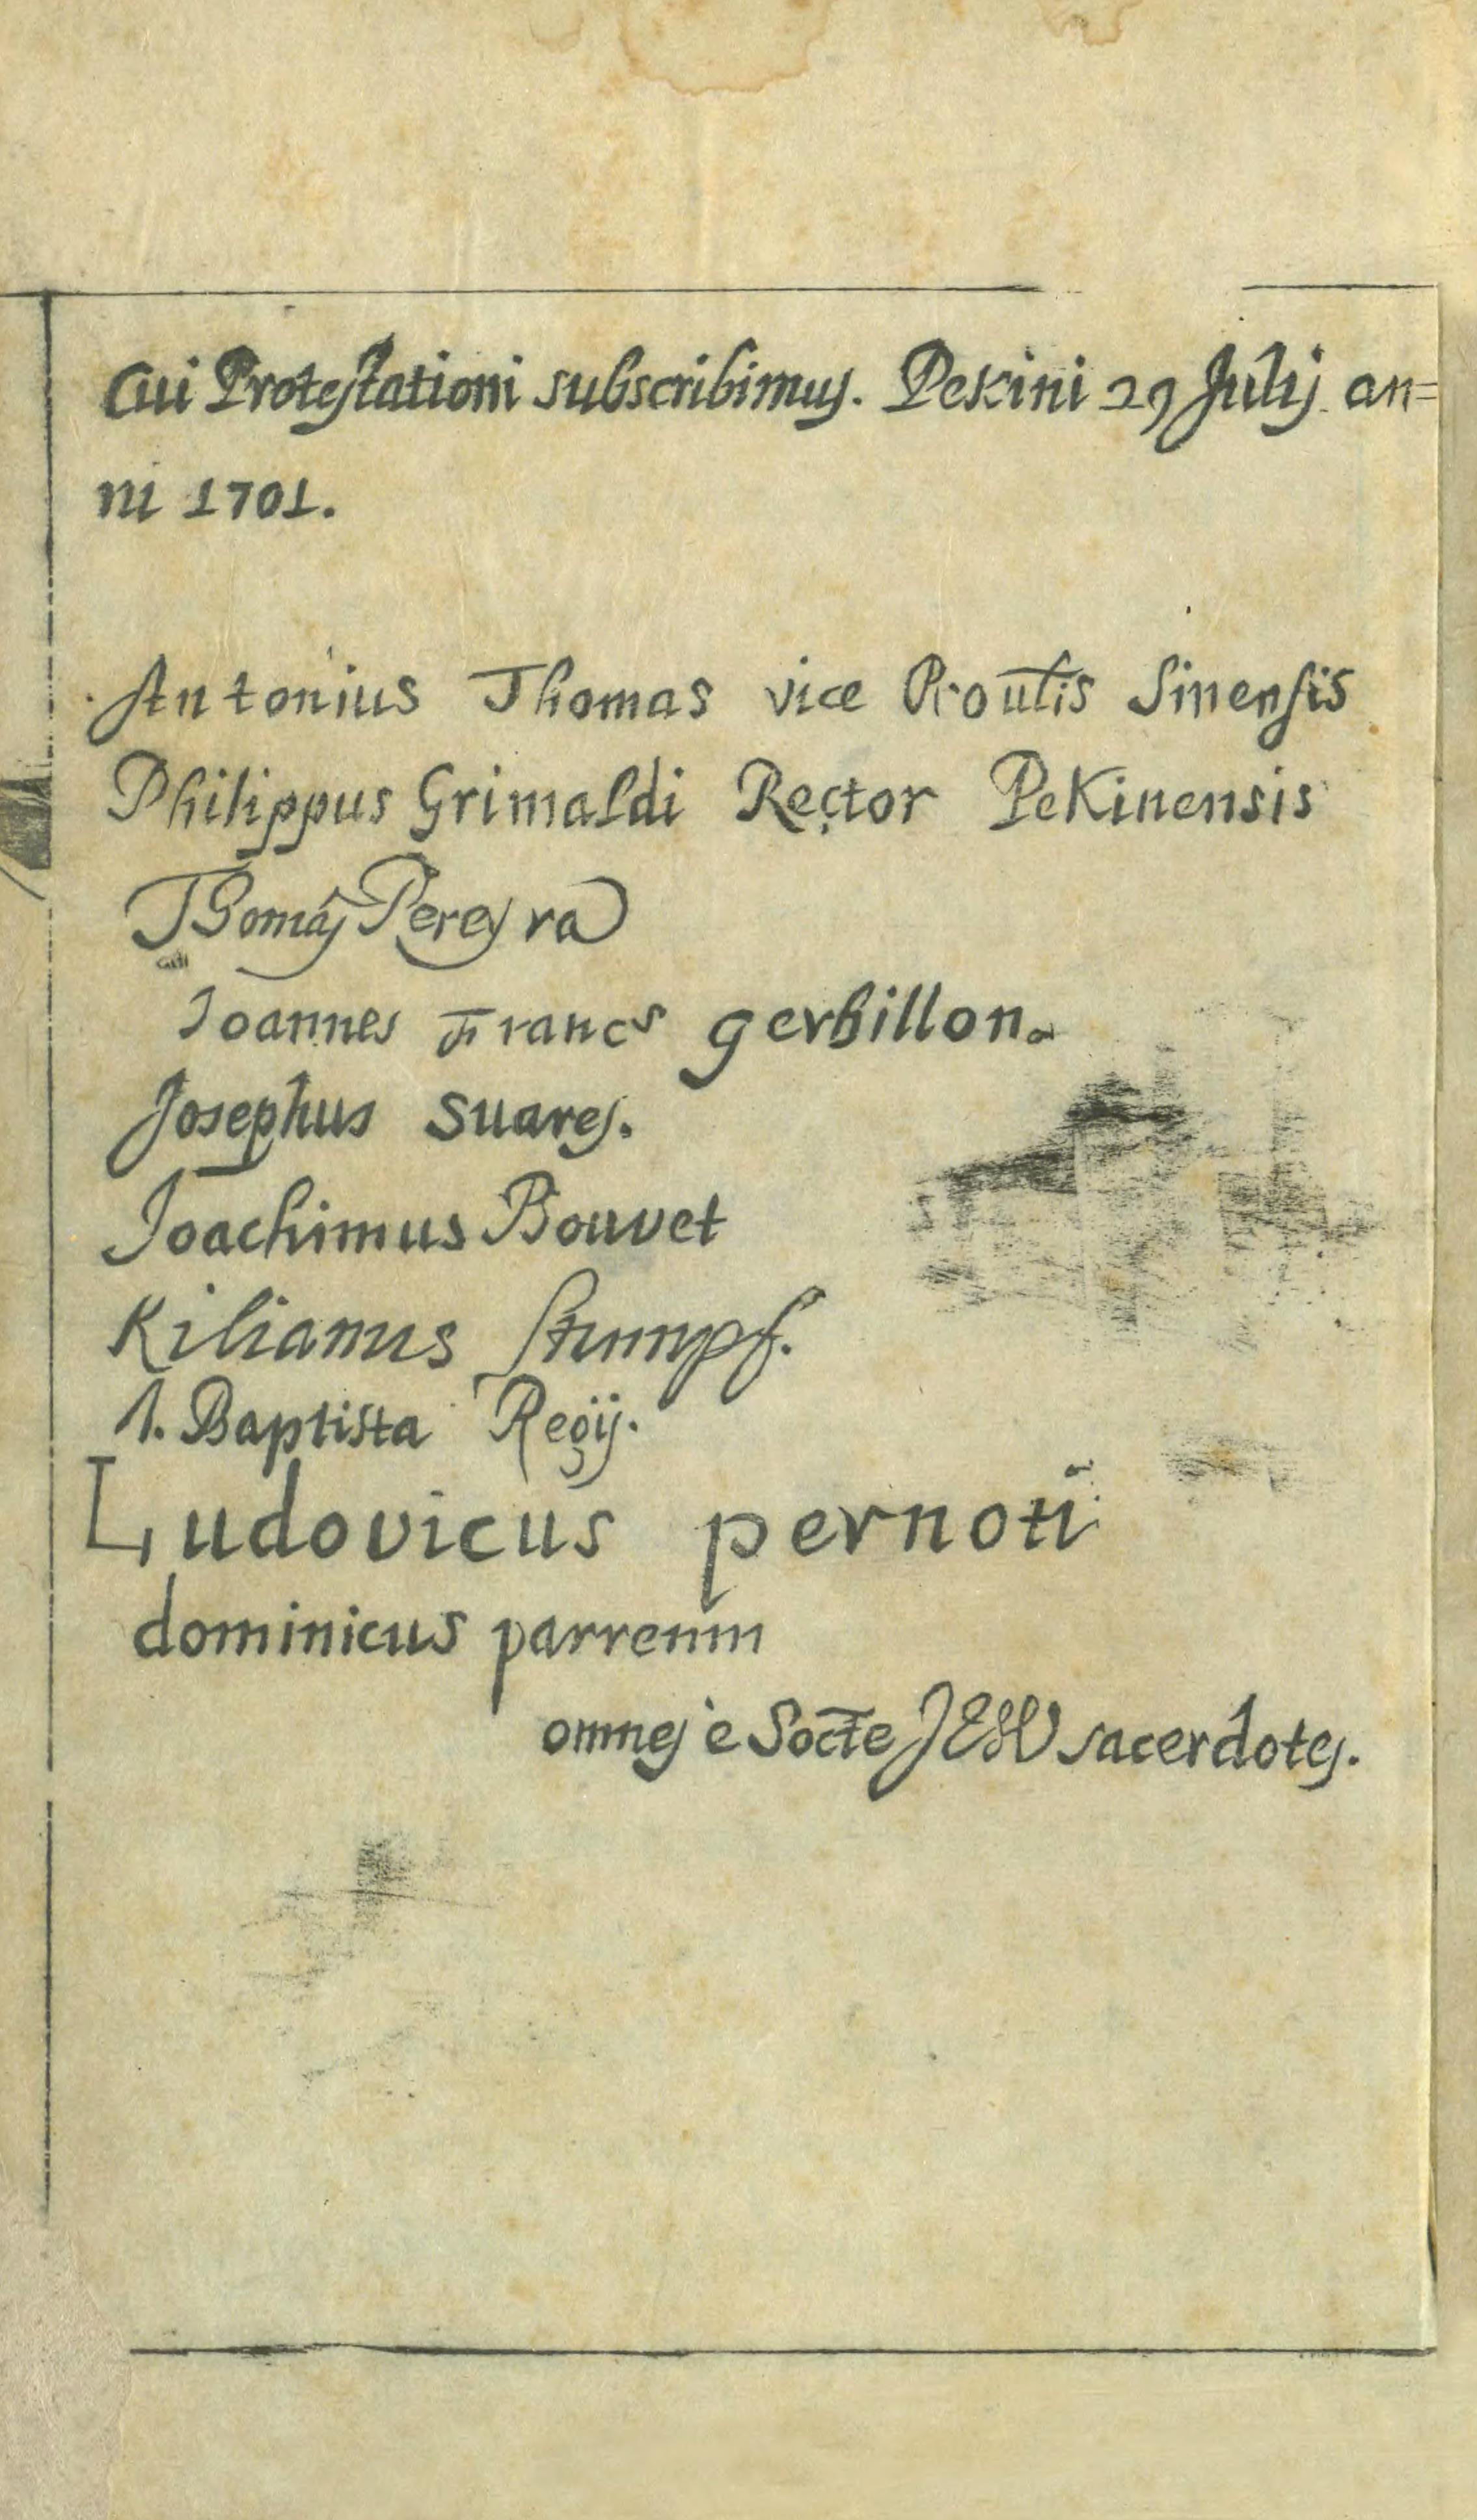 Cui Protestationi subscribimus. Pekini 29 Julij an=
ni 1701.
Antonius Thomas vice Proulis Sinensis
Philippus Grimaldi Rector PeKinensis
Thomás Pereyra
Joannes Francs gerbillon.
Josephus Suares.
Joachimus Bouvet
Kilianus Stumpf.
I. Baptista Regij.
Ludovicus pernoti
dominicus parrenin
omnes è Socte JESU sacerdotes.